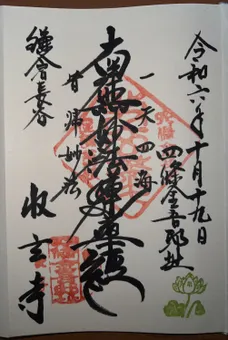 令和六年十月十九日
四條金吾邸址
一天四海
南無妙法蓮華経
皆帰妙法
鎌倉長谷
収玄寺